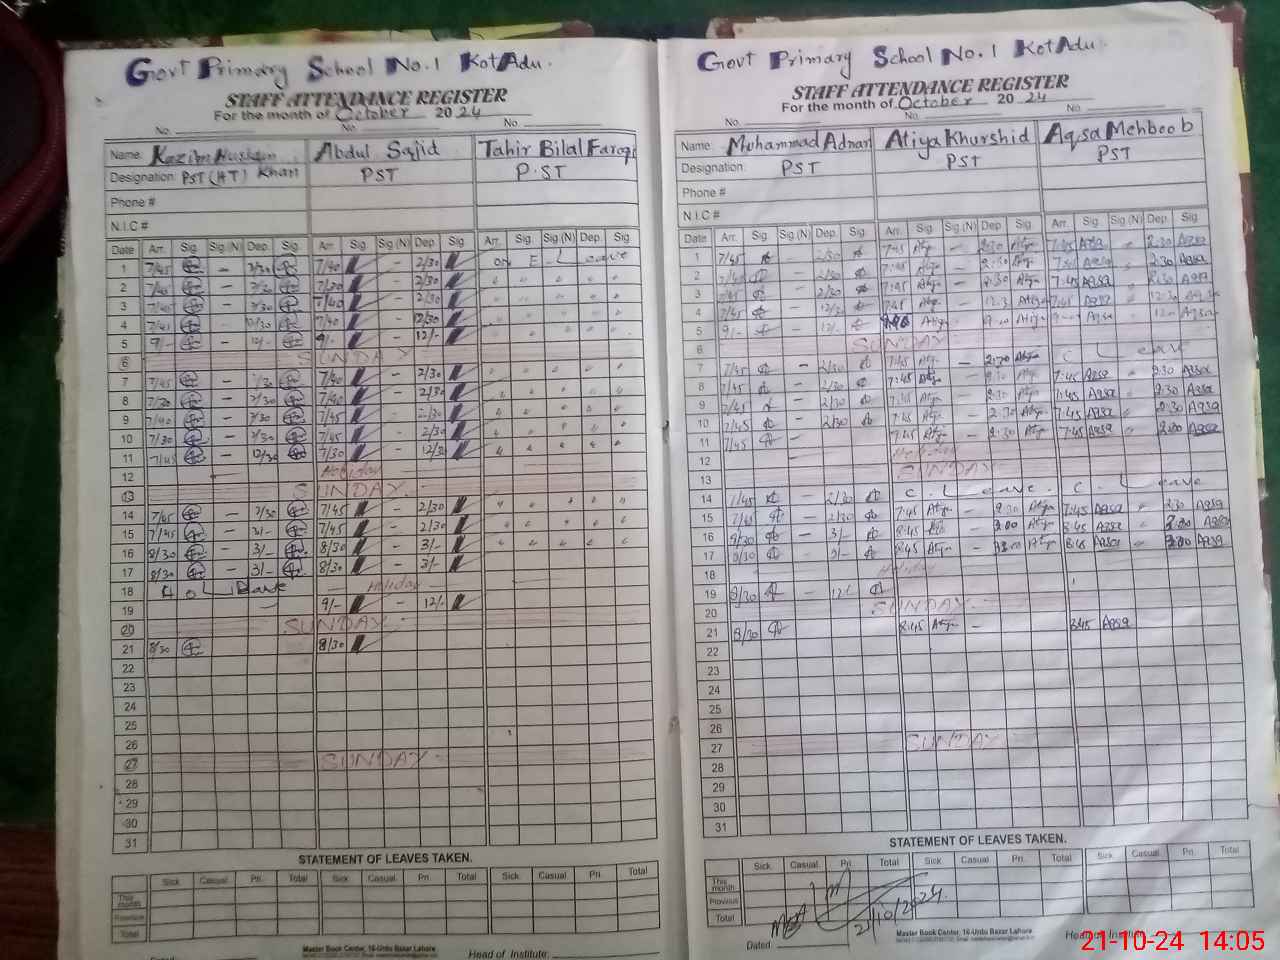 Govt Primary School No.1 Kot Adu.
STAFF ATTENDANCE REGISTER
For the month of October 2024
No. No. No.
Name: Khan Abdul Sajid Tahir Bilal Farooqi
Designation: PST (HT) PST P.ST
Phone #
N.I.C #
Date Arr. Sig. Sig (N) Dep. Sig. Arr. Sig. Sig (N) Dep. Sig. Arr. Sig. Sig (N) Dep. Sig.
1 7/45 – 2/30 7/40 – 2/30 on E-Leave
2 7/45 – 2/30 – 2/30
3 – 2/30 7/40 – 2/30
4 – 12/30 7/40 – 12/30
5 9/- – 12/- 9/- – 12/-
6 SUNDAY
7 7/45 – 2/30 7/40 – 2/30
8 – 2/30 7/40 – 2/30
9 7/40 – 2/30 7/45 – 2/30
10 7/30 – 2/30 7/45 – 2/30
11 7/45 – 12/30 7/30 – 12/30
12 Holiday
13 SUNDAY
14 7/45 – 2/30 7/45 – 2/30
15 7/45 – 3/- 7/45 – 2/30
16 8/30 – 3/- 8/30 – 3/-
17 8/30 – 3/- 8/30 – 3/-
18 Leave Holiday
19 9/- – 12/-
20 SUNDAY
21 8/30 8/30
22
23
24
25
26
27 SUNDAY
28
29
30
31
STATEMENT OF LEAVES TAKEN.
Sick Casual Pri. Total Sick Casual Pri. Total Sick Casual Pri. Total
This month
Previous
Total
Master Book Center, 16-Urdu Bazar Lahore
Dated: Head of Institute:
Govt Primary School No.1 Kot Adu.
STAFF ATTENDANCE REGISTER
For the month of October 2024
No. No. No.
Name: Muhammad Adnan Atiya Khurshid Aqsa Mehboob
Designation: PST PST PST
Phone #
N.I.C #
Date Arr. Sig. Sig (N) Dep. Sig. Arr. Sig. Sig (N) Dep. Sig. Arr. Sig. Sig (N) Dep. Sig.
1 7/45 – 2/30 7:45 Atiya – 2:30 Atiya 7:45 Aqsa 2:30 Aqsa
2 7/45 – 2/30 7:45 Atiya 2:30 Atiya 7:45 Aqsa 2:30 Aqsa
3 7/45 – 2/30 7:45 Atiya 2:30 Atiya 7:45 Aqsa 2:30 Aqsa
4 7/45 – 12/30 7:45 Atiya Atiya 7:45 Aqsa 12:30 Aqsa
5 9/- – 12/- Atiya Atiya Aqsa Aqsa
6 SUNDAY
7 7/45 – 2/30 7:45 Atiya – 2:30 Atiya C Leave
8 7/45 – 2/30 7:45 Atiya 2:30 Atiya 7:45 Aqsa 2:30 Aqsa
9 7/45 – 2/30 7:45 Atiya 2:30 Atiya 7:45 Aqsa 2:30 Aqsa
10 7/45 – 2/30 7:45 Atiya 2:30 Atiya 7:45 Aqsa 2:30 Aqsa
11 7/45 – 7:45 Atiya 2:30 Atiya 7:45 Aqsa Aqsa
12 Holiday
13 SUNDAY
14 7/45 – 2/30 C. Leave. C. Leave
15 7/45 – 2/30 7:45 Atiya 2:30 Atiya 7:45 Aqsa 2:30 Aqsa
16 8/30 – 3/- 8:45 3:00 Atiya 8:45 Aqsa Aqsa
17 8/30 – 3/- 8:45 Atiya 3:00 Atiya 8:45 Aqsa 3:00 Aqsa
18 Holiday
19 – 12/-
20 SUNDAY
21 8/30 8:45 Atiya – 8:45 Aqsa
22
23
24
25
26
27 SUNDAY
28
29
30
31
STATEMENT OF LEAVES TAKEN.
Sick Casual Pri. Total Sick Casual Pri. Total Sick Casual Pri. Total
This month
Previous
Total
21/10/2024.
Dated: Master Book Center, 16-Urdu Bazar Lahore Head of Institute
21-10-24 14:05